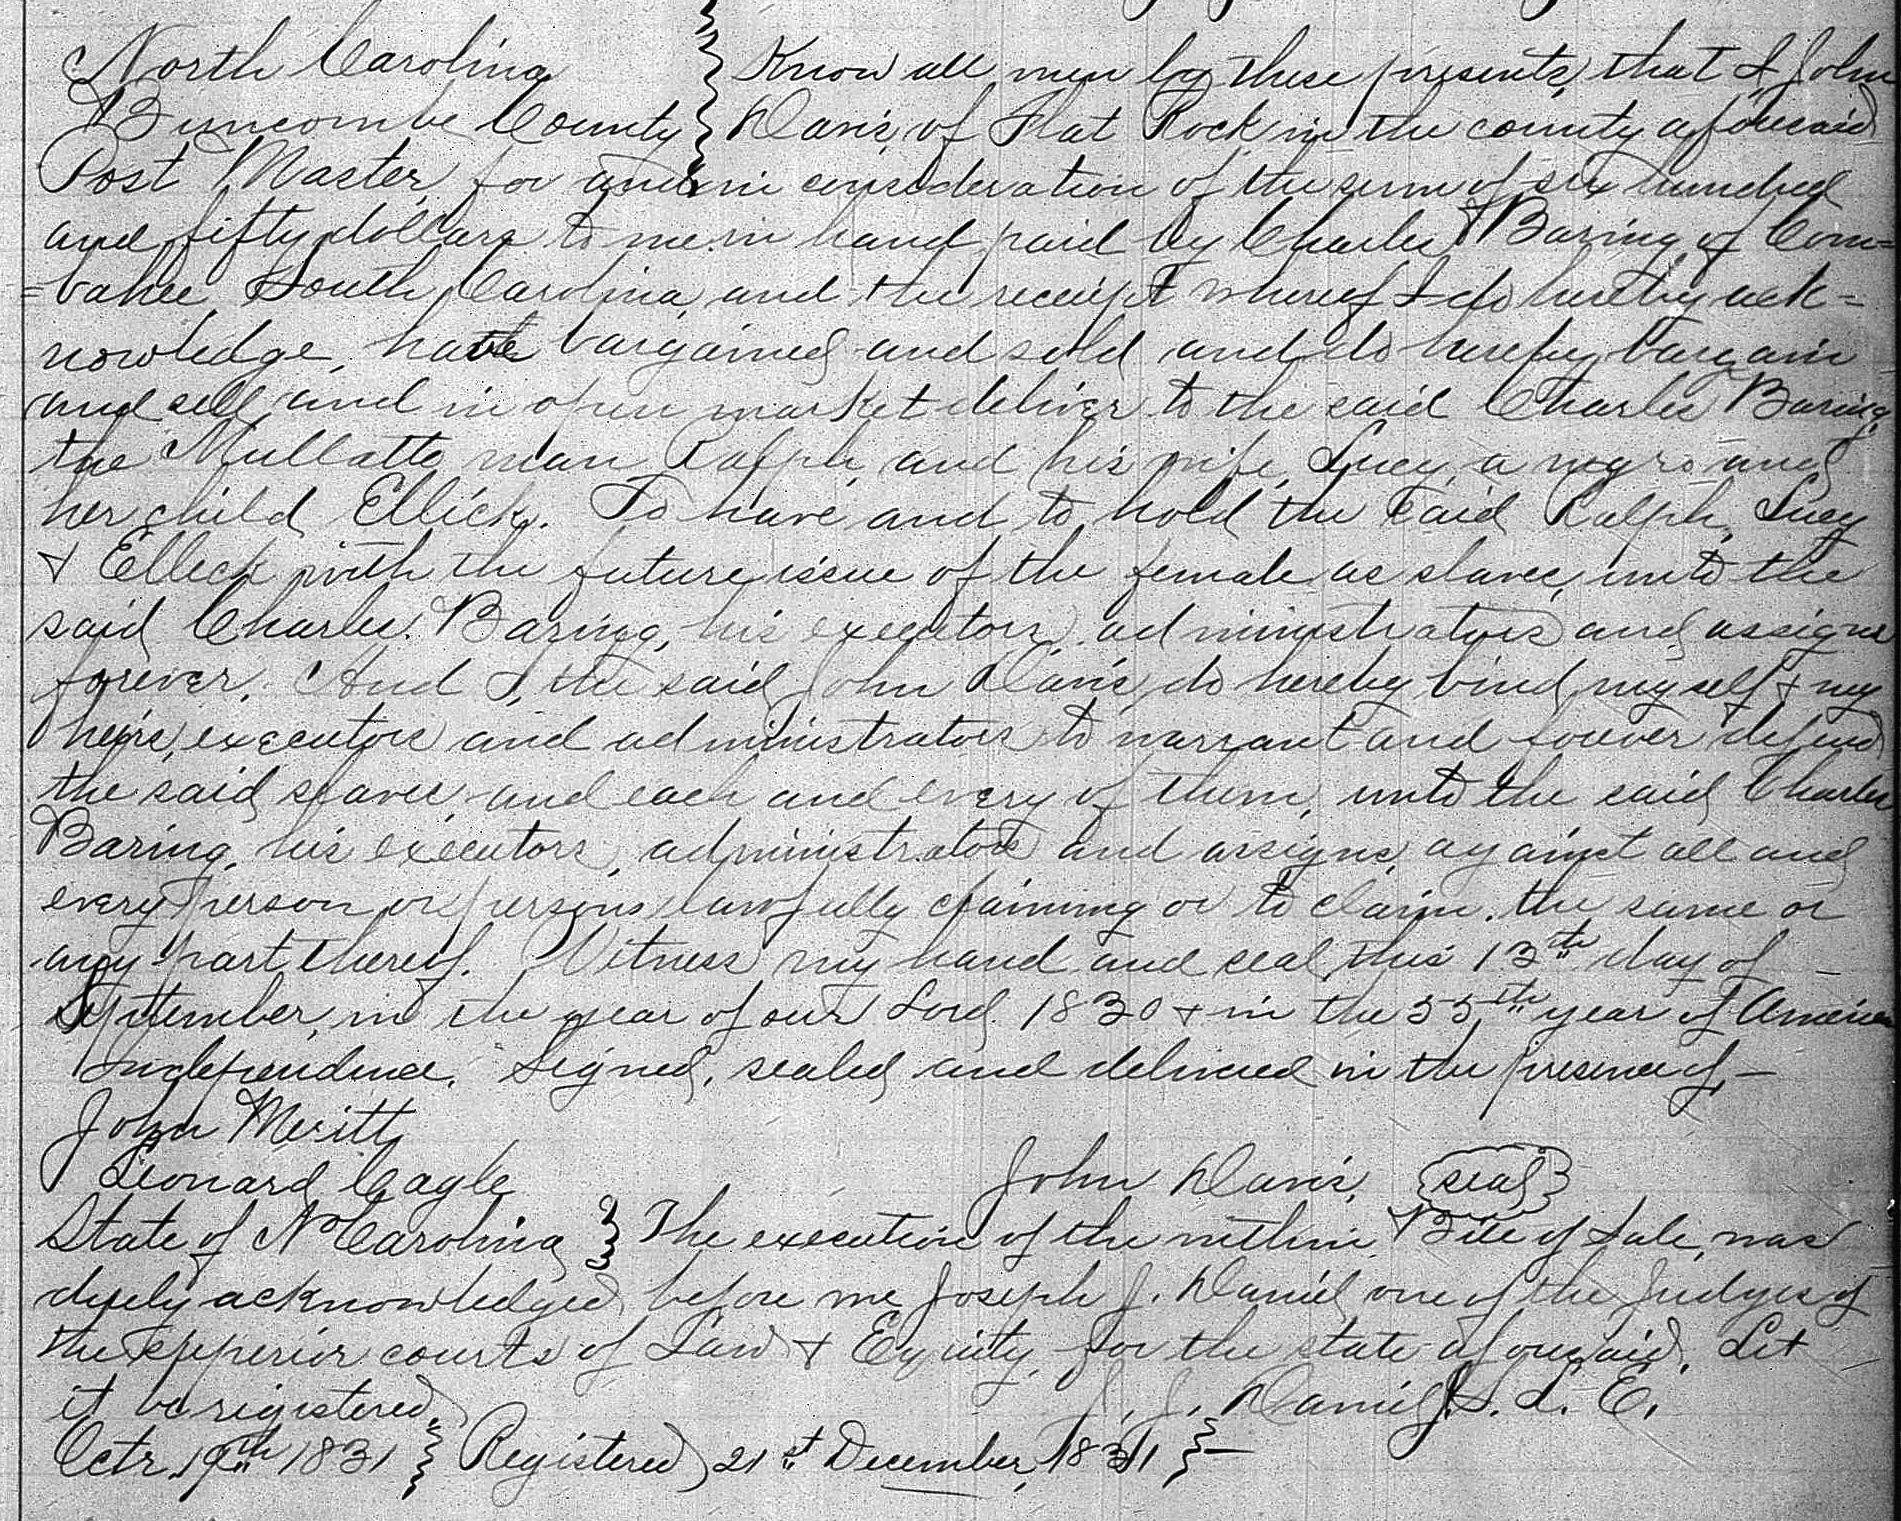 North Carolina } Know all men by these presents, that I, John
Buncombe County } Davis, of Flat Rock in the county aforesaid
Post Master, for and in consideration of the sum of six hundred
and fifty dollars to me in hand paid by Charles Baring of Com=
=bahee South Carolina, and the receipt whereof I do hereby ack=
nowledge, have bargained and sold and do hereby bargain
and sell and in open market deliver to the said Charles Baring,
the Mullatto man Ralph and his wife, Lucy, a negro and
her child Ellick. To have and to hold the said Ralph, Lucy
& Elleck with the future issue of the female as slaves, unto the
said Charles Baring, his executors, administrators and assigns
forever. And I, the said John Davis, do hereby bind myself & my
heirs, executors and administrators to warrant and forever defend
the said slaves and each and every of them, unto the said Charles
Baring, his executors, administrators and assigns, against all and
every person or persons lawfully claiming or to claim the same or
any part thereof. Witness my hand and seal, this 13th day of
September, in the year of our Lord 1830 & in the 55th year of American
Independence. Signed, sealed and delivered in the presence of, -
John Meritt
Leonard Cagle
John Davis. seal
State of No Carolina } The execution of the within Bill of Sale, was
duely acknowledged before me Joseph J. Daniel one of the Judges of
the superior courts of Law & Equity, for the state aforesaid. Let
it be registered.
J. J. Daniel J. S. L. E.
Octr. 19th 1831 } Registered 21st December, 1831 } -